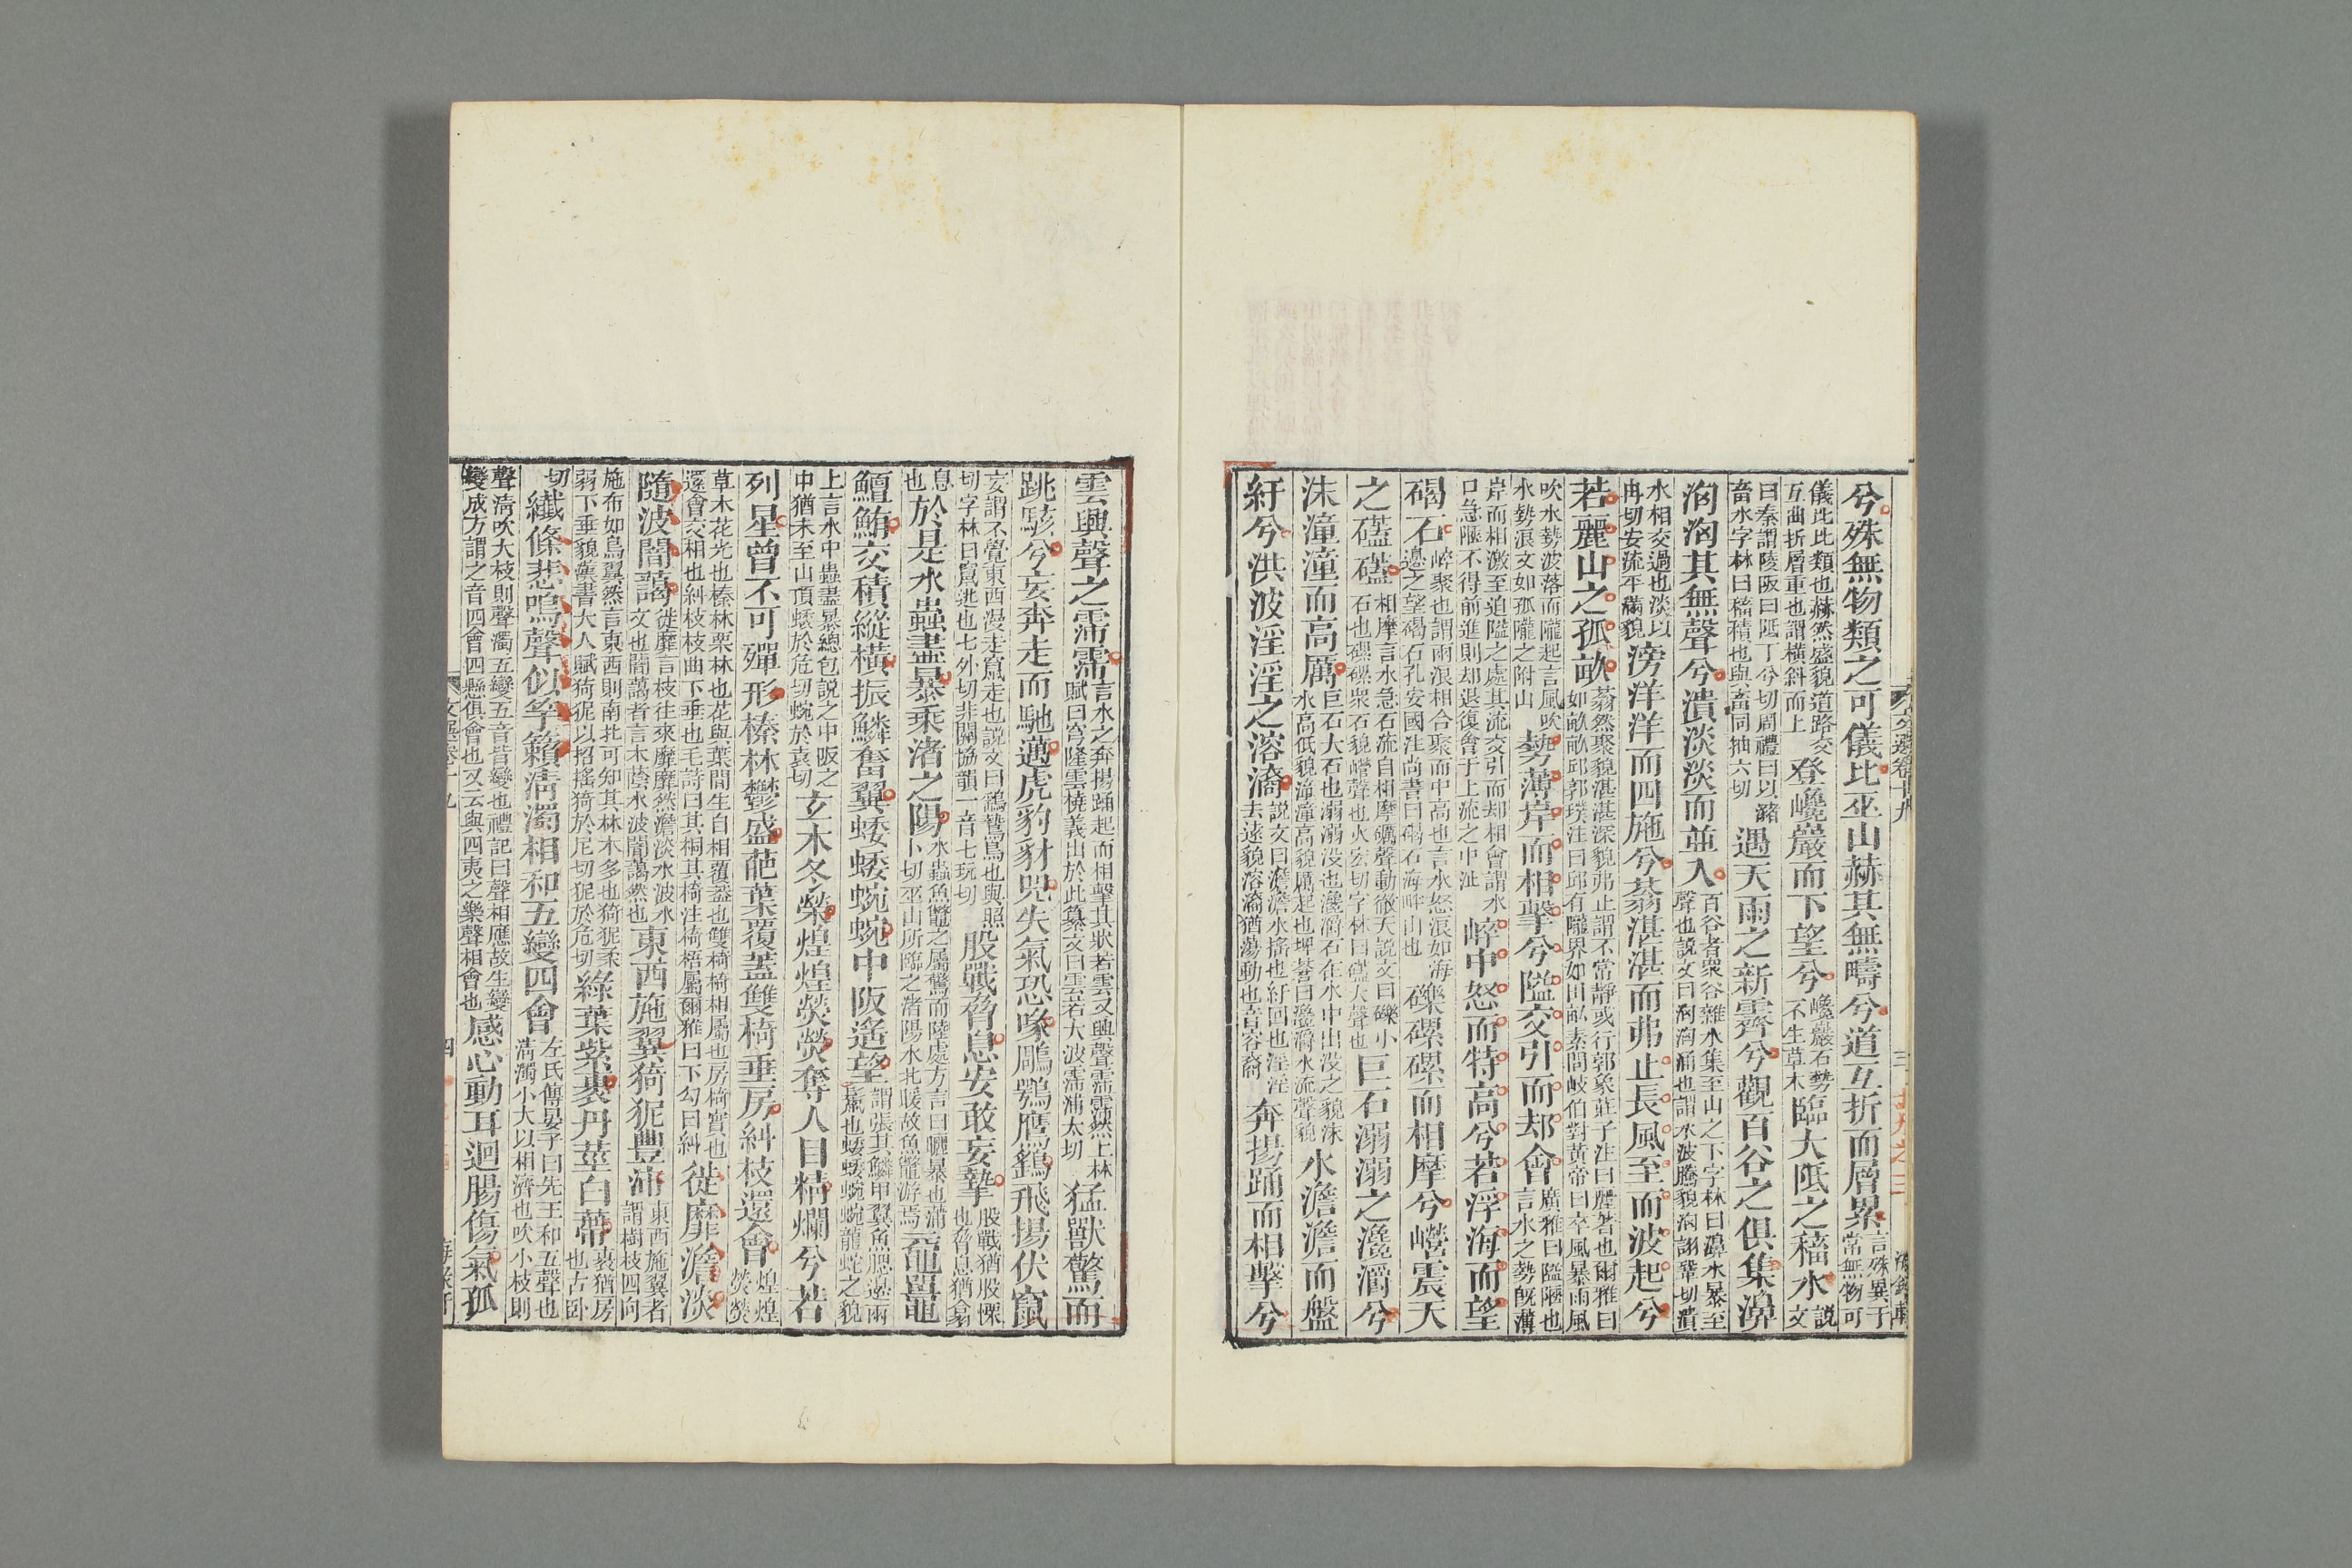 兮殊無物類之可儀比巫山赫其無疇兮道互折而層累言殊異于常無物可
儀比比類也赫然盛貌道路交互曲折層重也謂橫斜而上登巉巖而下望兮巉巖石勢不生草木臨大阺之稸水說文
曰秦謂陵阪曰阺丁兮切周禮曰以瀦畜水字林曰稸積也與畜同抽六切遇天雨之新霽兮觀百谷之俱集濞
洶洶其無聲兮潰淡淡而並入百谷者衆谷雜水集至山之下字林曰濞水暴至聲也說文曰洶洶涌也謂水波騰貌洶詡鞏切潰
水相交過也淡以冉切安流平滿貌滂洋洋而四施兮蓊湛湛而弗止長風至而波起兮
若麗山之孤畝蓊然聚貌湛湛深貌弗止謂不常靜或行郭象莊子注曰麗著也爾雅曰如畝畝邱郭璞注曰邱有隴界如田畝素問岐伯對黃帝曰卒風暴雨風
吹水勢波落而隴起言風吹水勢浪文如孤隴之附山勢薄岸而相擊兮隘交引而却會廣雅曰隘陿也言水之勢旣薄
岸而相激至迫隘之處其流交引而却相會謂水口急陿不得前進則却退復會于上流之中沚崪中怒而特高兮若浮海而望
碣石崪聚也謂兩浪相合聚而中高也言水怒浪如海邊之望碣石孔安國注尚書曰碣石海畔山也礫磥磥而相摩兮巆震天
之礚礚相摩言水急石流自相摩礪聲動徹天說文曰礫小石也磥磥衆石貌巆聲也火宏切字林曰礚大聲也巨石溺溺之瀺灂兮
沫潼潼而高厲巨石大石也溺溺没也瀺灂石在水中出没之貌沫水高低貌潼潼高貌厲起也埤蒼曰瀺灂水流聲貌水澹澹而盤
紆兮洪波淫淫之溶㵝說文曰澹澹水搖也紆回也淫淫去遠貌溶㵝猶蕩動也音容裔奔揚踊而相擊兮
雲興聲之霈霈言水之奔揚踊起而相擊其狀若雲又興聲霈霈然上林賦曰穹隆雲橈義出於此纂文曰雲若大波霈浦太切猛獸驚而
跳駭兮妄奔走而馳邁虎豹豺兕失氣恐喙鵰鶚鷹鷂飛揚伏竄
妄謂不覺東西漫走嵐走也說文曰鷂鷙鳥也與照切字林曰竄逃也七外切非關協韻一音七玩切股戰脅息安敢妄摯股戰猶股慄也脅息猶翕
息也於是水蟲盡暴乘渚之陽水蟲魚鼈之屬驚而陸處方言曰曬暴也蒲卜切巫山所臨之渚陽水北暖故魚鼈游焉黿鼉
鱣鮪交積縱橫振鱗奮翼蜲蜲蜿蜿中阪遙望謂張其鱗甲翼魚腮邊兩鬣也蜲蜲蜿蜿龍蛇之貌
上言水中蟲盡暴總包說之中阪之中猶未至山頂蜲於危切蜿於袁切玄木冬榮煌煌熒熒奪人目精爛兮若
列星曾不可殫形榛林鬱盛葩葉覆蓋雙椅垂房糾枝還會煌煌熒熒
草木花光也榛林栗林也花與葉間生自相覆蓋也雙椅椅相屬也房椅實也還會交相也糾枝枝曲下垂也毛詩曰其桐其椅注椅梧屬爾雅曰下勾曰糾徙靡澹淡
隨波闇藹徙靡言枝往來靡靡然澹淡水波水文也闇藹者言木蔭水波闇藹然也東西施翼猗狔豐沛東西施翼者謂樹枝四向
施布如鳥翼然言東西則南北可知其林木多也猗狔柔弱下垂貌漢書大人賦猗狔以招搖猗於尼切狔於危切綠葉紫裹丹莖白蔕裹猶房也占卧
切纖條悲鳴聲似竽籟淸濁相和五變四會左氏傳晏子曰先王和五聲也淸濁小大以相濟也吹小枝則
聲淸吹大枝則聲濁五變五音皆變也禮記曰聲相應故生變變成方謂之音四會四懸俱會也又云與四夷之樂聲相會也感心動耳迴腸傷氣孤
文選卷十九
四